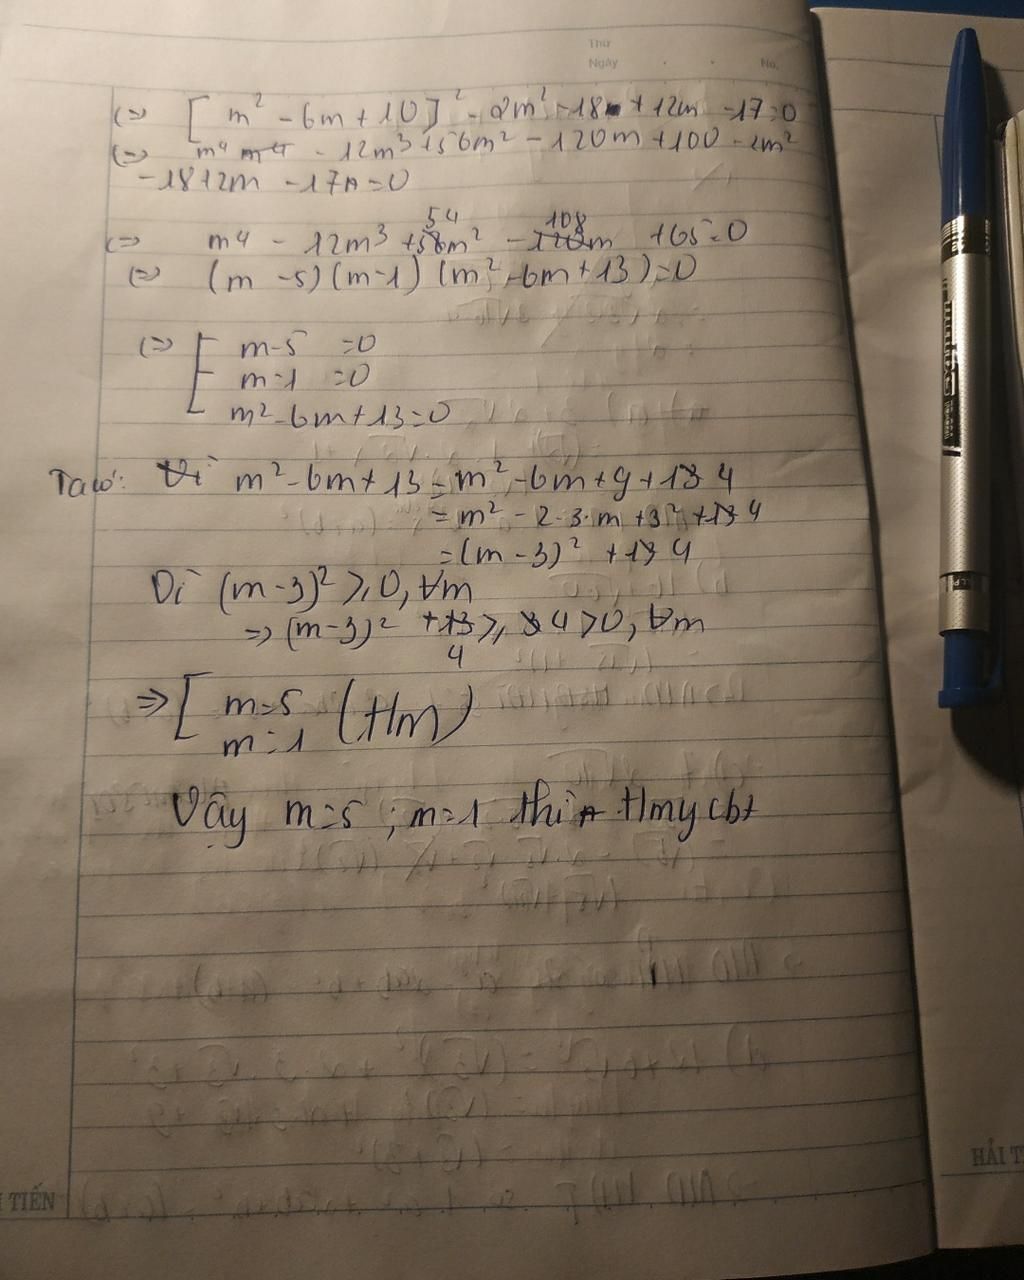 Thứ
Ngày . . No.
(=> [m² - 6m + 10]² - 2m² - 18 + 12m - 17 = 0
(=> m⁴ - 12m³ + 56m² - 120m + 100 - 2m²
- 18 + 12m - 17 = 0
(=> m⁴ - 12m³ + 54m² - 108m + 65 = 0
(=> (m - 5)(m - 1)(m² - 6m + 13) = 0
(=> [ m - 5 = 0
m - 1 = 0
m² - 6m + 13 = 0
Ta có: m² - 6m + 13 = m² - 6m + 9 + 4
= m² - 2·3·m + 3² + 4
= (m - 3)² + 4
Vì (m - 3)² ≥ 0, ∀m
=> (m - 3)² + 4 ≥ 4 > 0, ∀m
=> [ m = 5
m = 1 (tm)
Vậy m = 5 ; m = 1 thì tmycbt
TIẾN
HẢI T